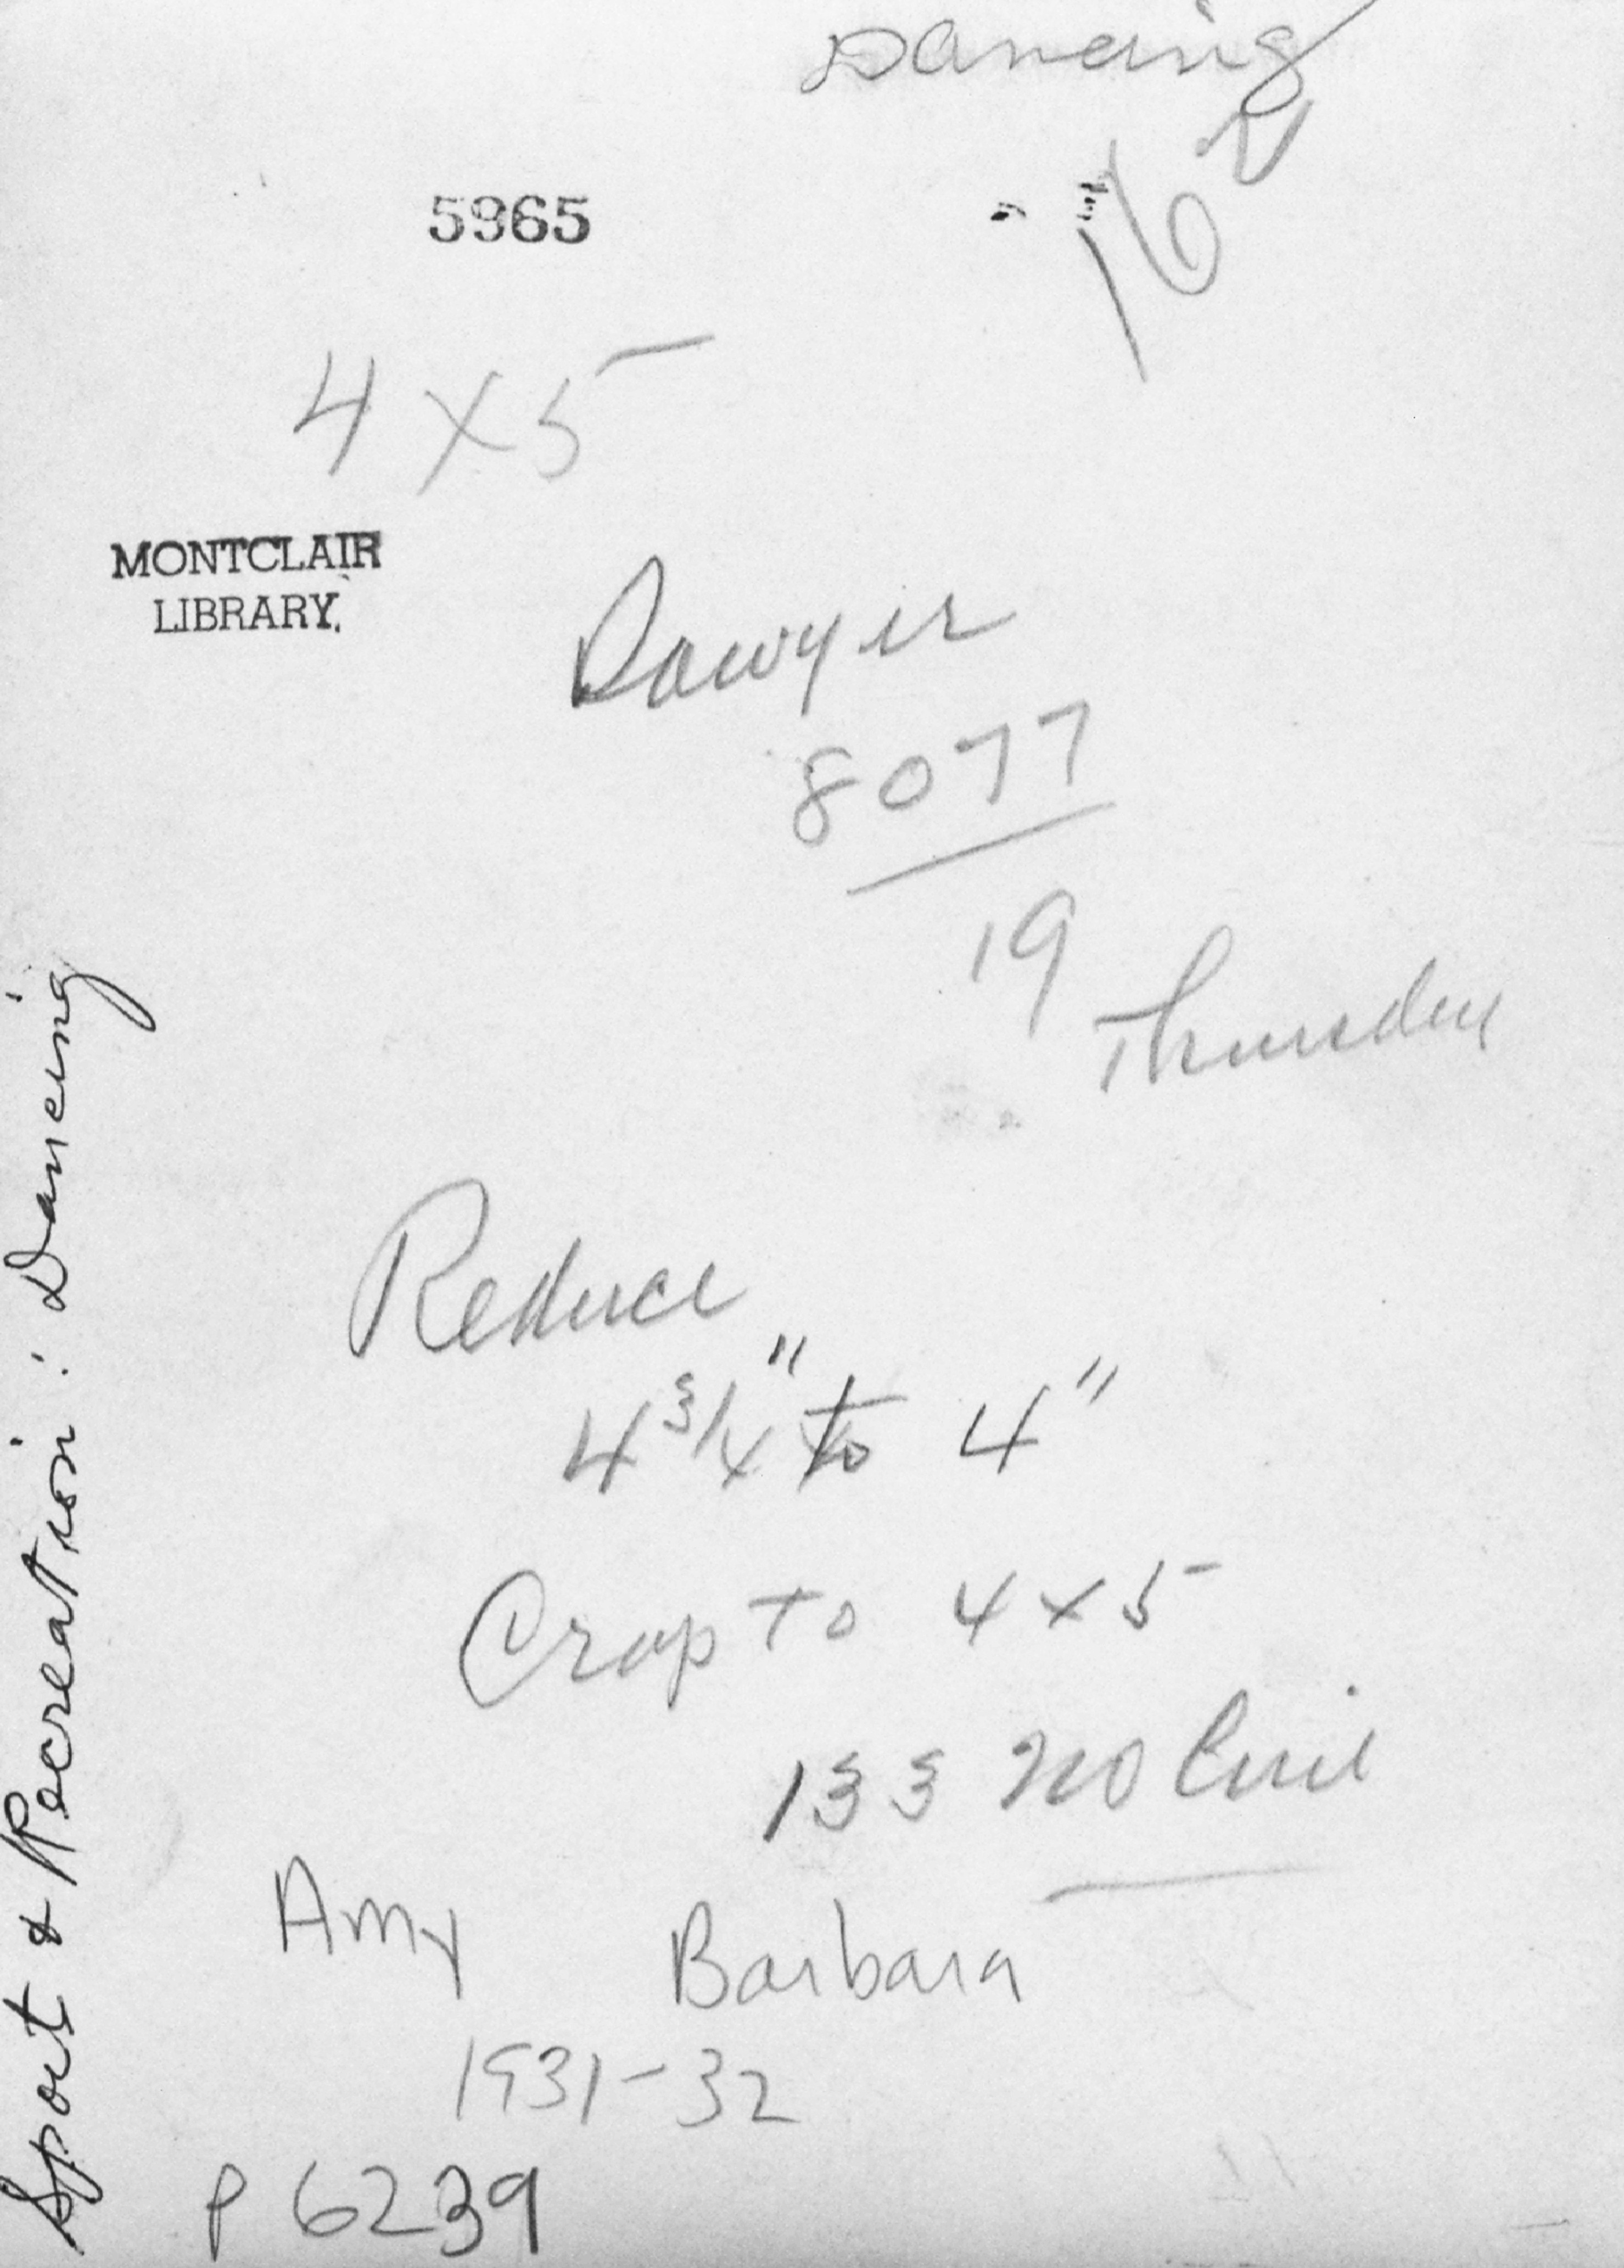 Dancing
5965
16
4 x 5
MONTCLAIR
LIBRARY.
8077
19
Reduce
4 3/4" to 4"
Crop to 4 x 5
133 no
Amy Barbara
1931-32
P 6239
Sport & Recreation: Dancing